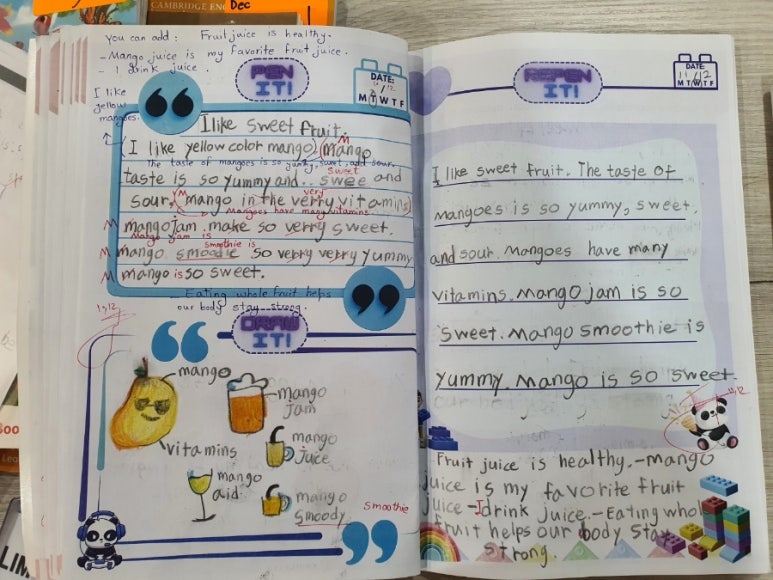 Dec
CAMBRIDGE EN
You can add: Fruit juice is healthy.
-Mango juice is my favorite fruit juice.
- I drink juice.
I like
yellow
mangoes.
PEN
IT!
DATE:
11/12
M T W T F
I like sweet fruit.
(I like yellow color mango) (mango
The taste of mangoes is so yummy, sweet, and sour.
taste is so yummy and.. swee and
sweet
sour, mango in the verry vitamins)
very
Mangoes have many vitamins.
mango jam make so verry sweet.
Mango jam is
smoothie is
mango smoodie so verry verry yummy
mango is so sweet.
- Eating whole fruit helps
our body stay strong.
11/12
DRAW
IT!
mango
mango
jam
vitamins
mango
juice
mango
aid
mango
smoody
smoothie
REPEN
IT!
DATE:
11/12
M T W T F
I like sweet fruit. The taste of
mangoes is so yummy, sweet,
and sour. Mangoes have many
vitamins. Mango jam is so
sweet. Mango smoothie is
yummy. Mango is so sweet.
11/12
Fruit juice is healthy.-mango
juice is my favorite fruit
juice -I drink juice.-Eating whol
fruit helps our body stay
strong.
LIM